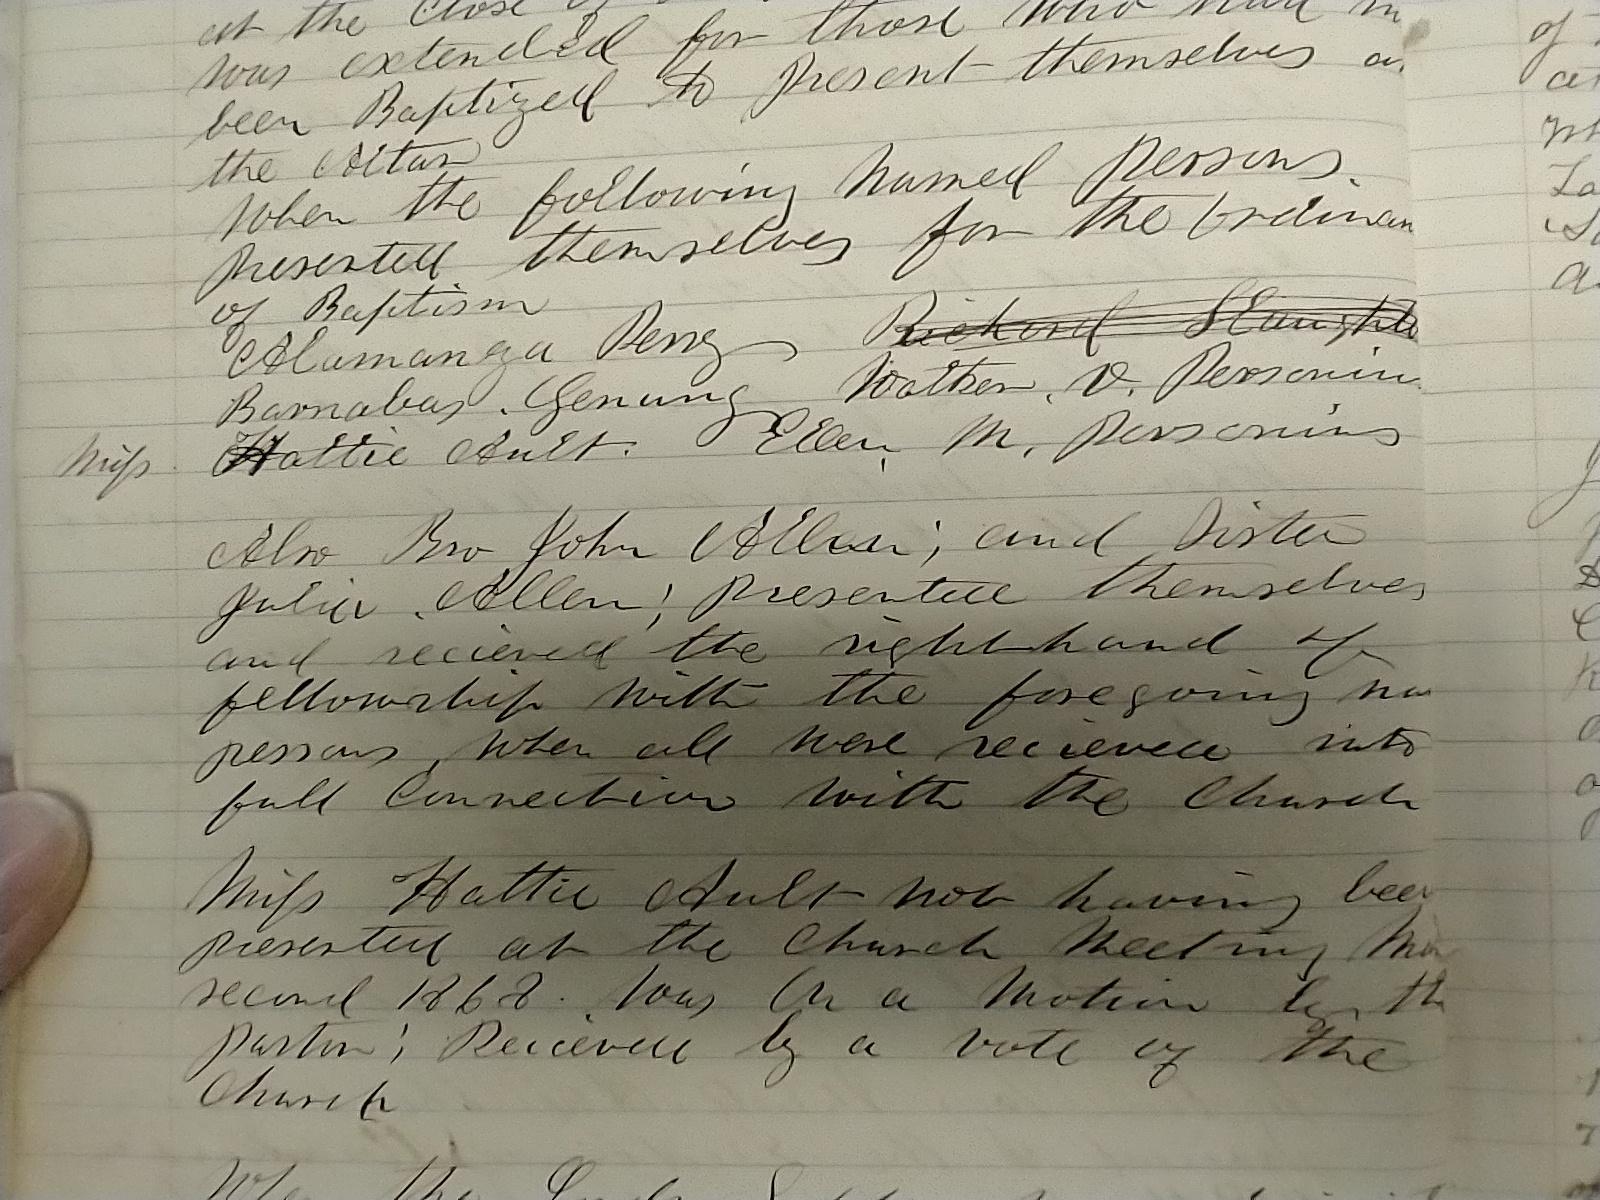 at the Close of
was extended for those who had
been Baptized to present themselves
the Altar
When the following named persons.
presented themselves for the Ordinan
of Baptism
Alamanza Perry Richard Slaughte
Barnabas. Genung Walter. V. Personiu
Miss. Hattie Ault. Ellen, M, Personius
Also Bro John Allen; and Sister
Julia Allen; presented themselves
and recieved the right hand of
fellowship with the foregoing na
persons, when all were recieved into
full Connection with the Church
Miss Hattie Ault not having been
presented at the Church Meeting
second 1868. Was On a Motion by th
pastor; Recieved by a vote of the
Church
the